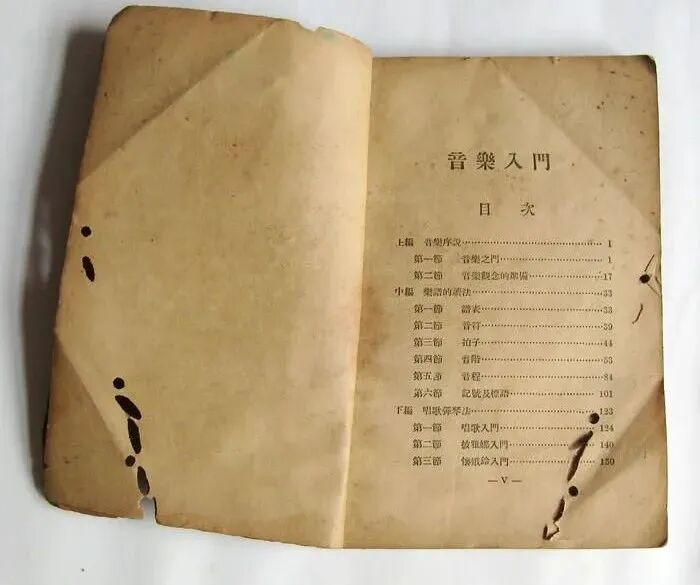 音樂入門
目 次
上編 音樂序説……1
第一節 音樂之門……1
第二節 音樂觀念的準備……17
中編 樂譜的讀法……33
第一節 譜表……33
第二節 音符……39
第三節 拍子……44
第四節 音階……53
第五節 音程……84
第六節 記號及標語……101
下編 唱歌彈琴法……123
第一節 唱歌入門……124
第二節 披雅娜入門……140
第三節 懷娥鈴入門……150
— V —